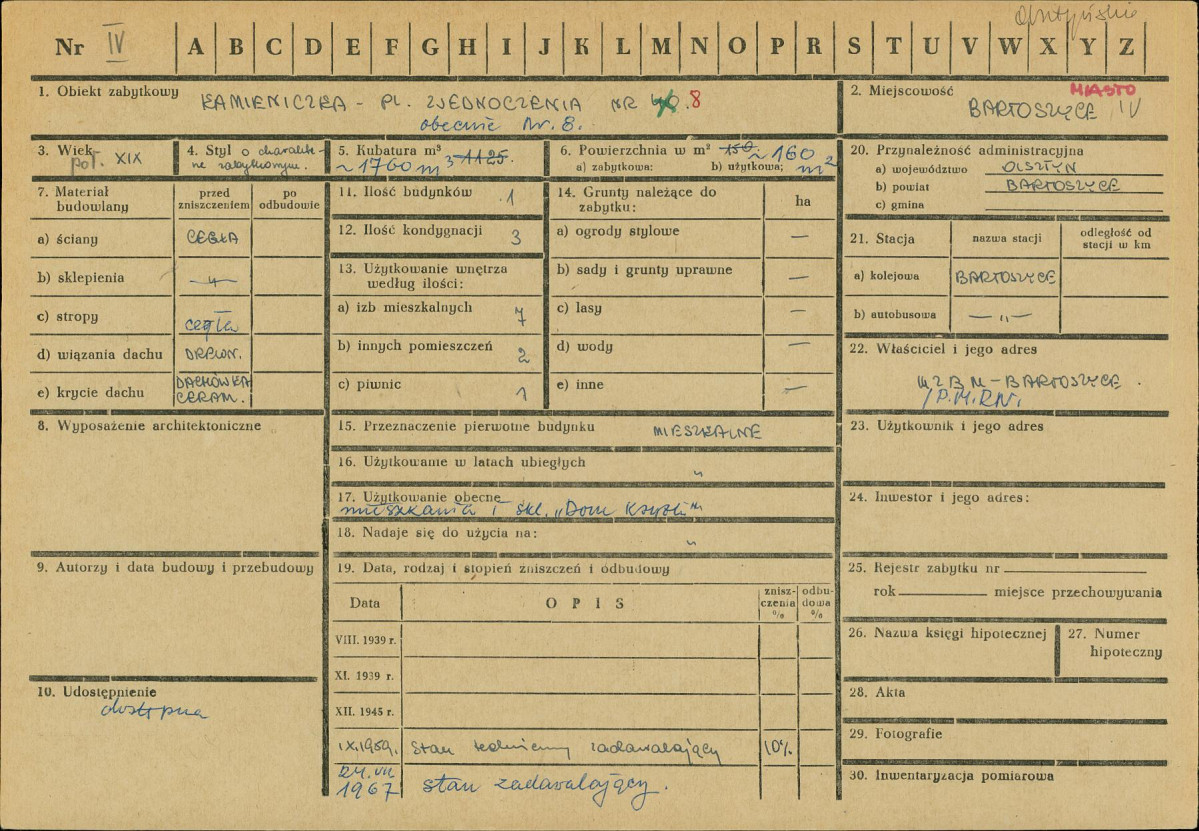 Nr IV A B C D E F G H I J K L M N O P R S T U V W X Y Z
1. Obiekt zabytkowy KAMIENICZKA - PL. ZJEDNOCZENIA NR 8
obecnie Nr. 8.
2. Miejscowość MIASTO
BARTOSZYCE IV
3. Wiek
poł. XIX
4. Styl o charakte-
rze zabytkowym.
5. Kubatura m³ 1125.
~1760 m³
6. Powierzchnia w m² 150 ~160
a) zabytkowa: b) użytkowa: m²
7. Materiał
budowlany
przed
zniszczeniem
po
odbudowie
a) ściany CEGŁA
b) sklepienia —„—
c) stropy cegła
d) wiązania dachu DREWN.
e) krycie dachu DACHÓWKA
CERAM.
8. Wyposażenie architektoniczne
9. Autorzy i data budowy i przebudowy
10. Udostępnienie
dostępna
11. Ilość budynków 1
12. Ilość kondygnacji 3
13. Użytkowanie wnętrza
według ilości:
a) izb mieszkalnych 7
b) innych pomieszczeń 2
c) piwnic 1
14. Grunty należące do
zabytku:
ha
a) ogrody stylowe —
b) sady i grunty uprawne —
c) lasy —
d) wody —
e) inne —
15. Przeznaczenie pierwotne budynku MIESZKALNE
16. Użytkowanie w latach ubiegłych „
17. Użytkowanie obecne
mieszkania i skl. „Dom Książki"
18. Nadaje się do użycia na: „
19. Data, rodzaj i stopień zniszczeń i odbudowy
Data
OPIS
znisz-
czenia
%
odbu-
dowa
%
VIII. 1939 r.
XI. 1939 r.
XII. 1945 r.
IX.1959. stan techniczny zadawalający 10%
24.VII
1967 stan zadawalający.
20. Przynależność administracyjna
a) województwo OLSZTYN
b) powiat BARTOSZYCE
c) gmina
21. Stacja
nazwa stacji
odległość od
stacji w km
a) kolejowa BARTOSZYCE
b) autobusowa —„—
22. Właściciel i jego adres
MZBM - BARTOSZYCE.
/P.M.R.N.
23. Użytkownik i jego adres
24. Inwestor i jego adres:
25. Rejestr zabytku nr
rok miejsce przechowywania
26. Nazwa księgi hipotecznej
27. Numer
hipoteczny
28. Akta
29. Fotografie
30. Inwentaryzacja pomiarowa